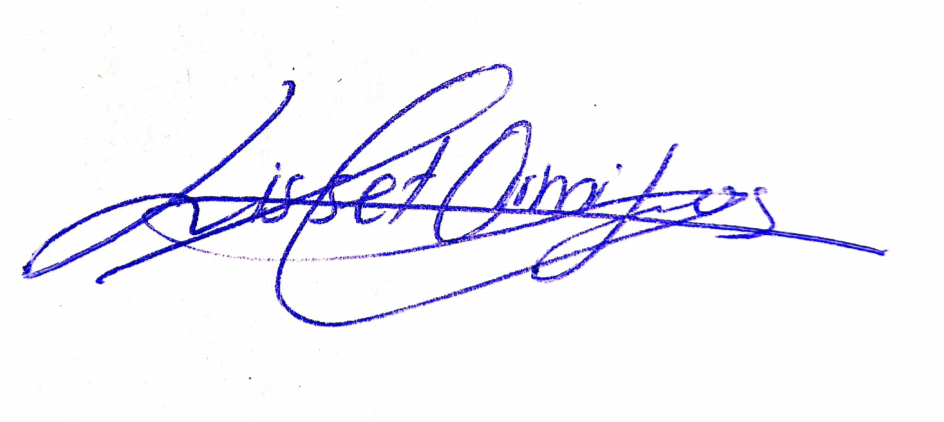 Lisset Armijos